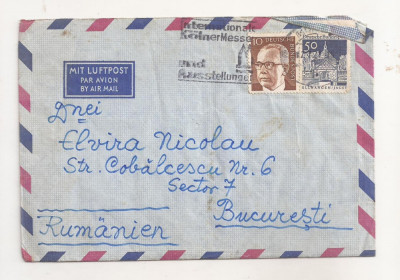 Internationale
Kölner Messen
und
Ausstellungen
10
DEUTSCHE
50
ELLWANGEN/JAGST
MIT LUFTPOST
PAR AVION
BY AIR MAIL
Dnei
Elvira Nicolau
Str. Cobălcescu Nr. 6
Sector 7
București
Rumänien